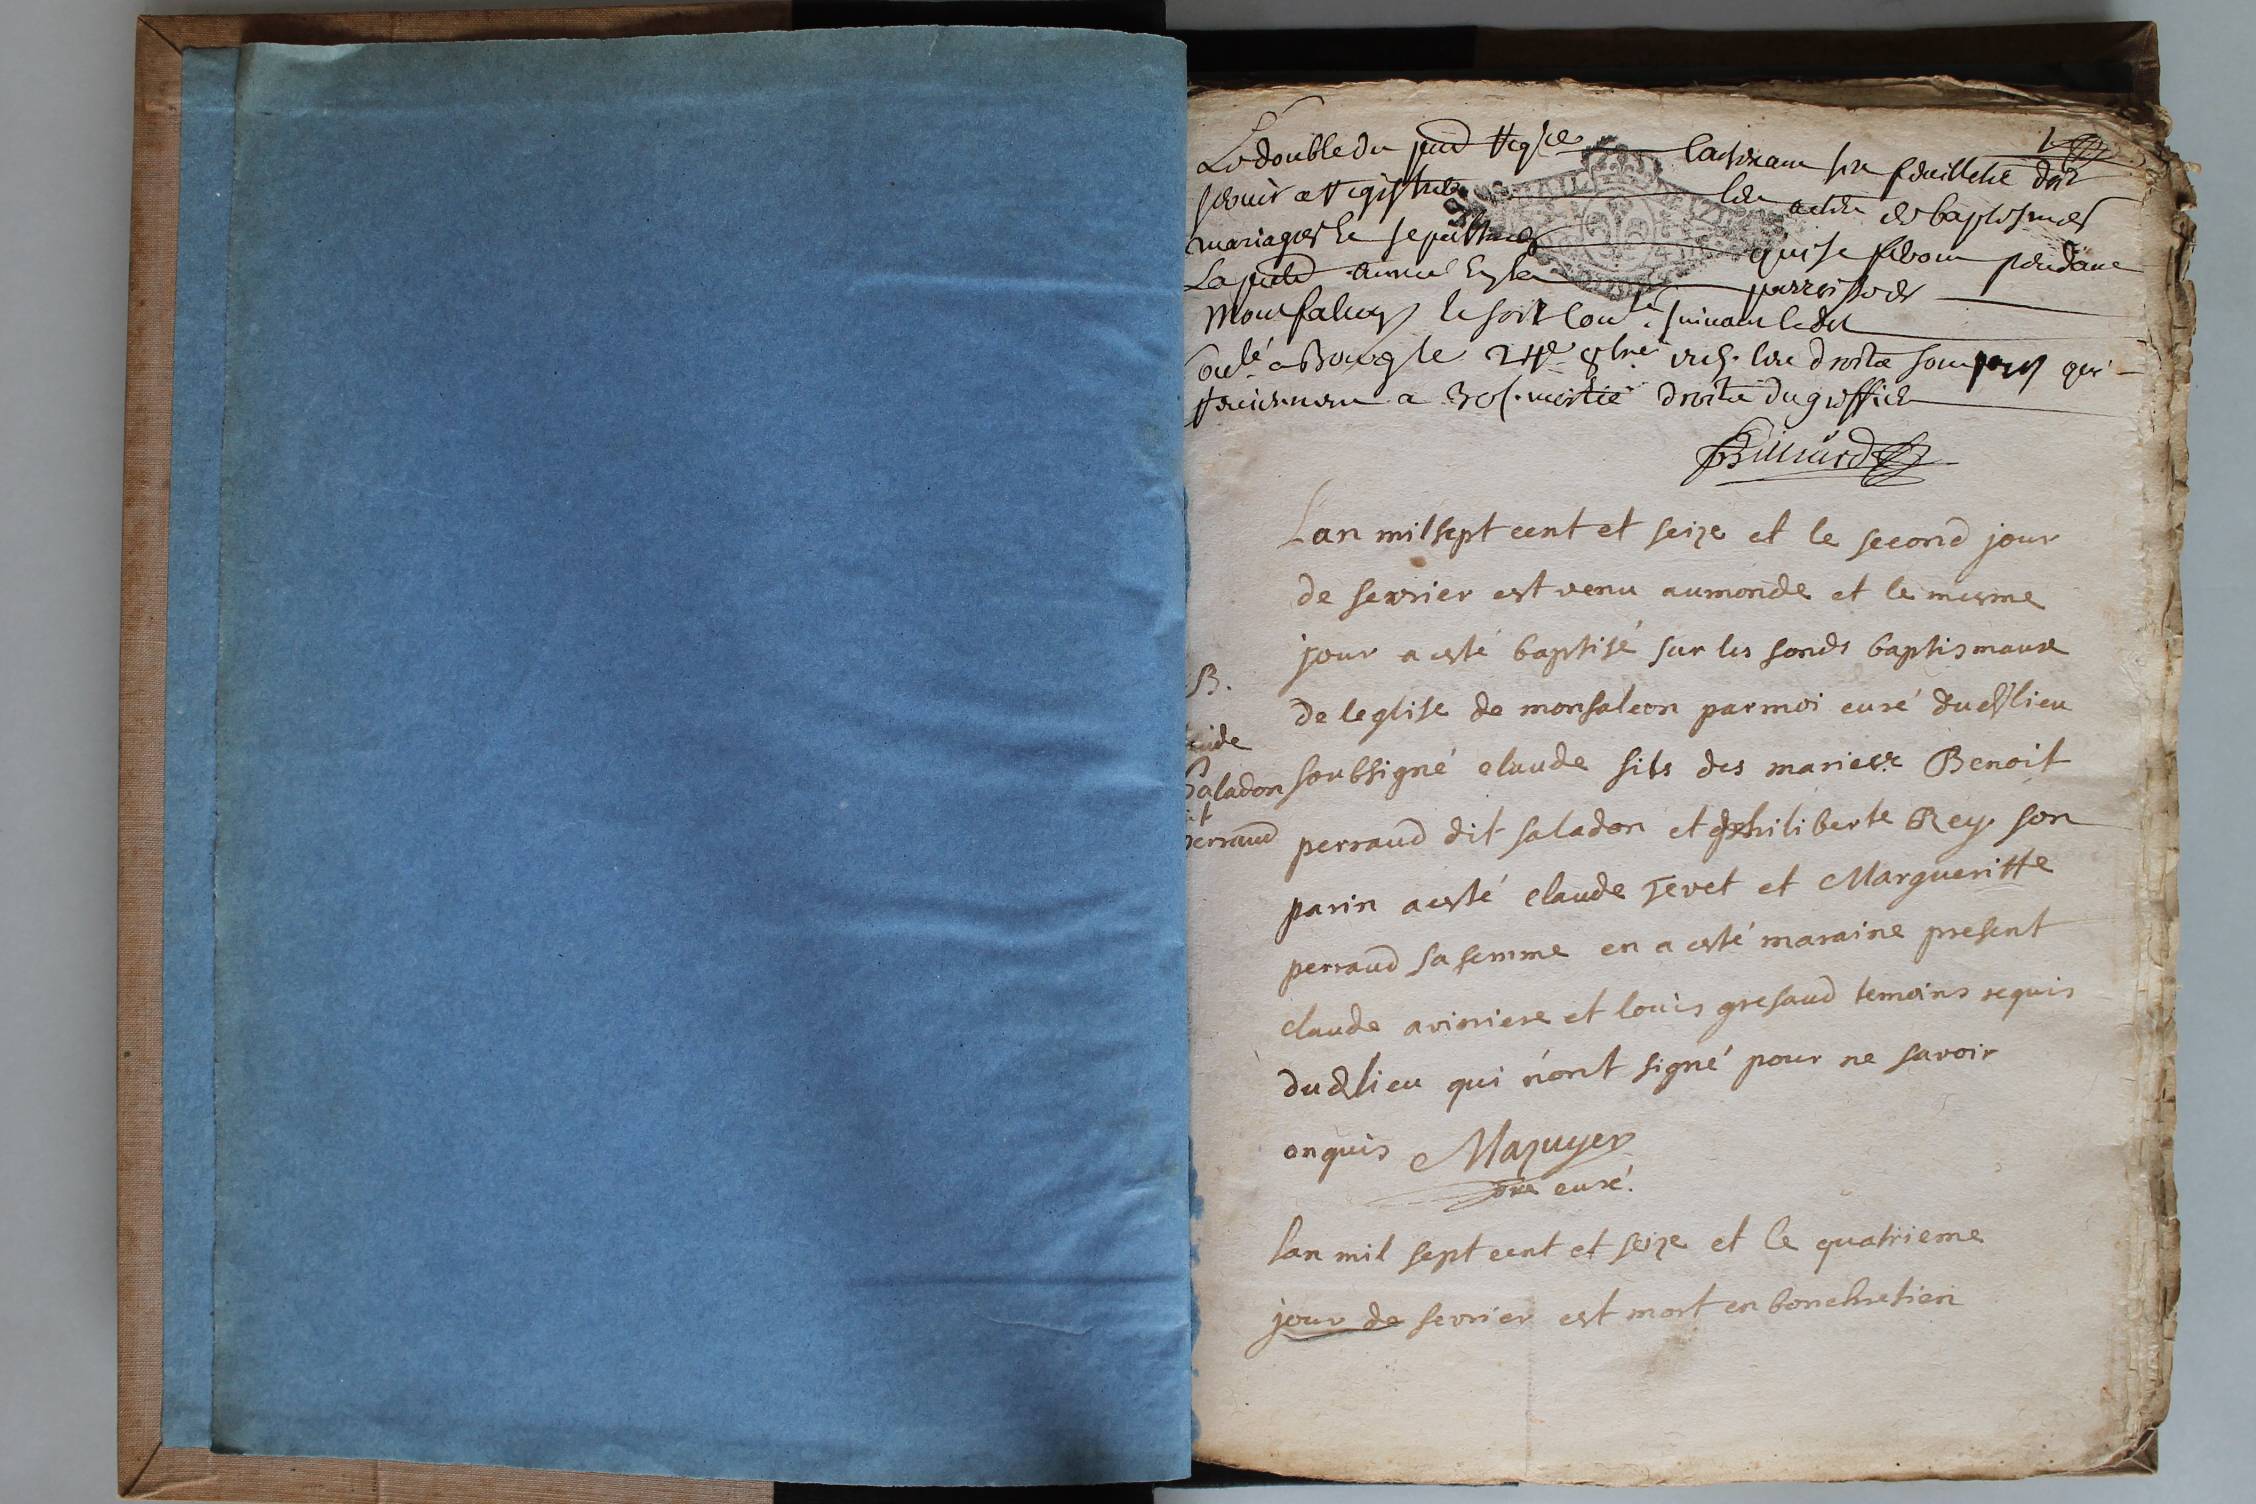 Le double du pnt Regre contenant six feuillets doit
servir a Registrer les actes de baptesmes
mariages et sepultures qui se feront pendant
La pnte année en la parroisse de
Montfalcon le soit suivant ledit
a Bourg le 24e 8bre les droits sont
a droits du greffier
B.
Claude
Saladon
dit
perraud
Lan mil sept cent et seize et le second jour
de fevrier est venu au monde et le mesme
jour a esté baptisé sur les fonds baptismaux
de leglise de monfalcon par moi curé dudt lieu
soubsigné claude fils des mariez Benoit
perraud dit saladon et philiberte Rey. son
parin a esté claude Tevet et Margueritte
perraud sa femme en a esté maraine present
claude ariniere et louis gresaud temoins requis
dudt lieu qui n'ont signé pour ne savoir
enquis Mazuyer
ptre curé.
Lan mil sept cent et seize et le quatrieme
jour de fevrier est mort en bon chretien